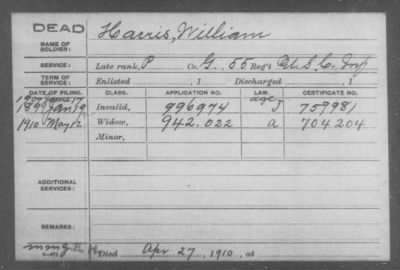 DEAD
Harris, William
NAME OF SOLDIER:
SERVICE: Late rank, P Co. G, 55 Reg't U.S.C. Inf
TERM OF SERVICE: Enlisted , 1 Discharged , 1
DATE OF FILING. CLASS. APPLICATION NO. LAW. CERTIFICATE NO.
1907 June 17 age
Jan 19 Invalid, 996974 J 759981
1910 May 12 Widow, 942.022 a 704204
Minor,
ADDITIONAL SERVICES:
REMARKS:
Died Apr 27, 1910, at